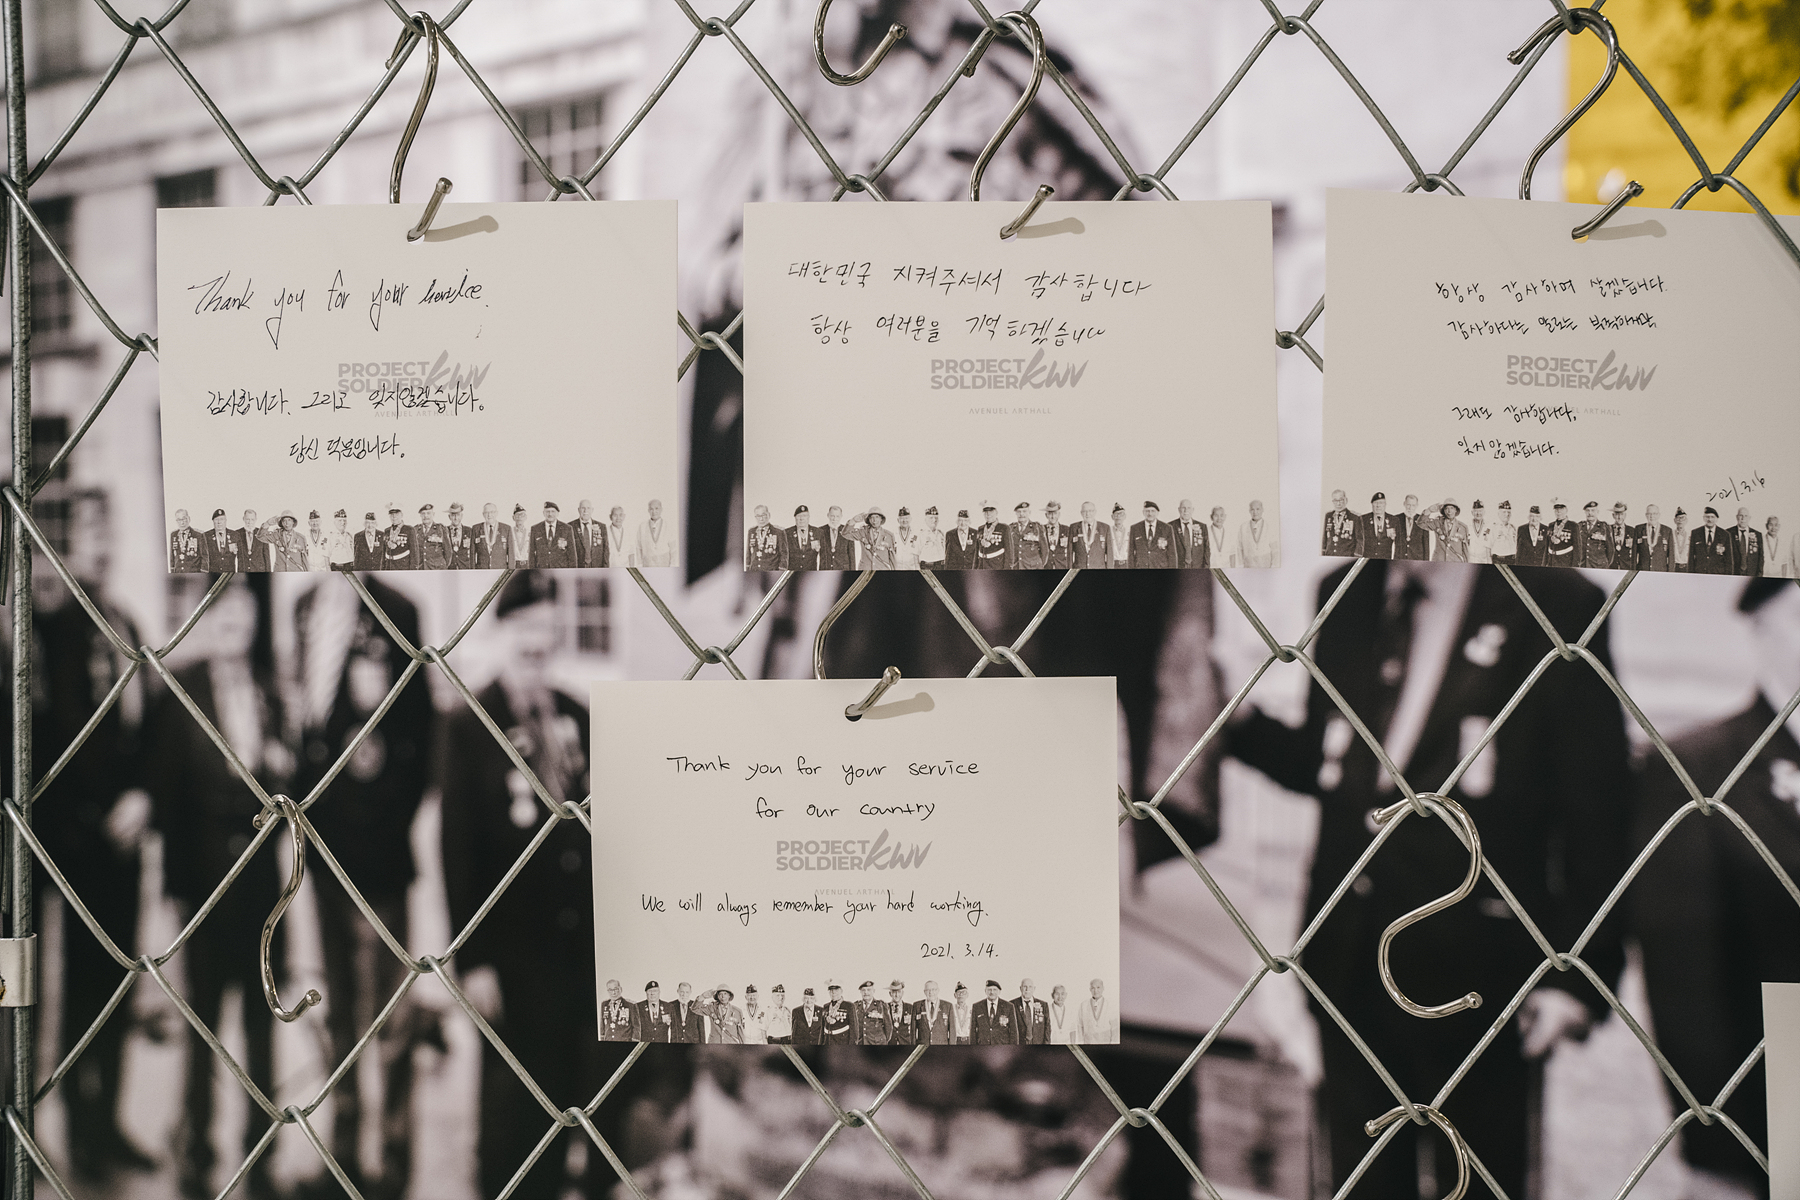 Thank you for your service.
PROJECT
SOLDIER KWV
감사합니다. 그리고 잊지않겠습니다.
AVENUEL ARTHALL
당신 덕분입니다.
대한민국 지켜주셔서 감사합니다
항상 여러분을 기억하겠습니다
PROJECT
SOLDIER KWV
AVENUEL ARTHALL
항상 감사하며 살겠습니다.
감사하다는 말로는 부족하지만,
PROJECT
SOLDIER KWV
그래도 감사합니다,
ARTHALL
잊지않겠습니다.
2021.3.16
Thank you for your service
for our country
PROJECT
SOLDIER KWV
AVENUEL ARTHALL
We will always remember your hard working.
2021. 3.14.